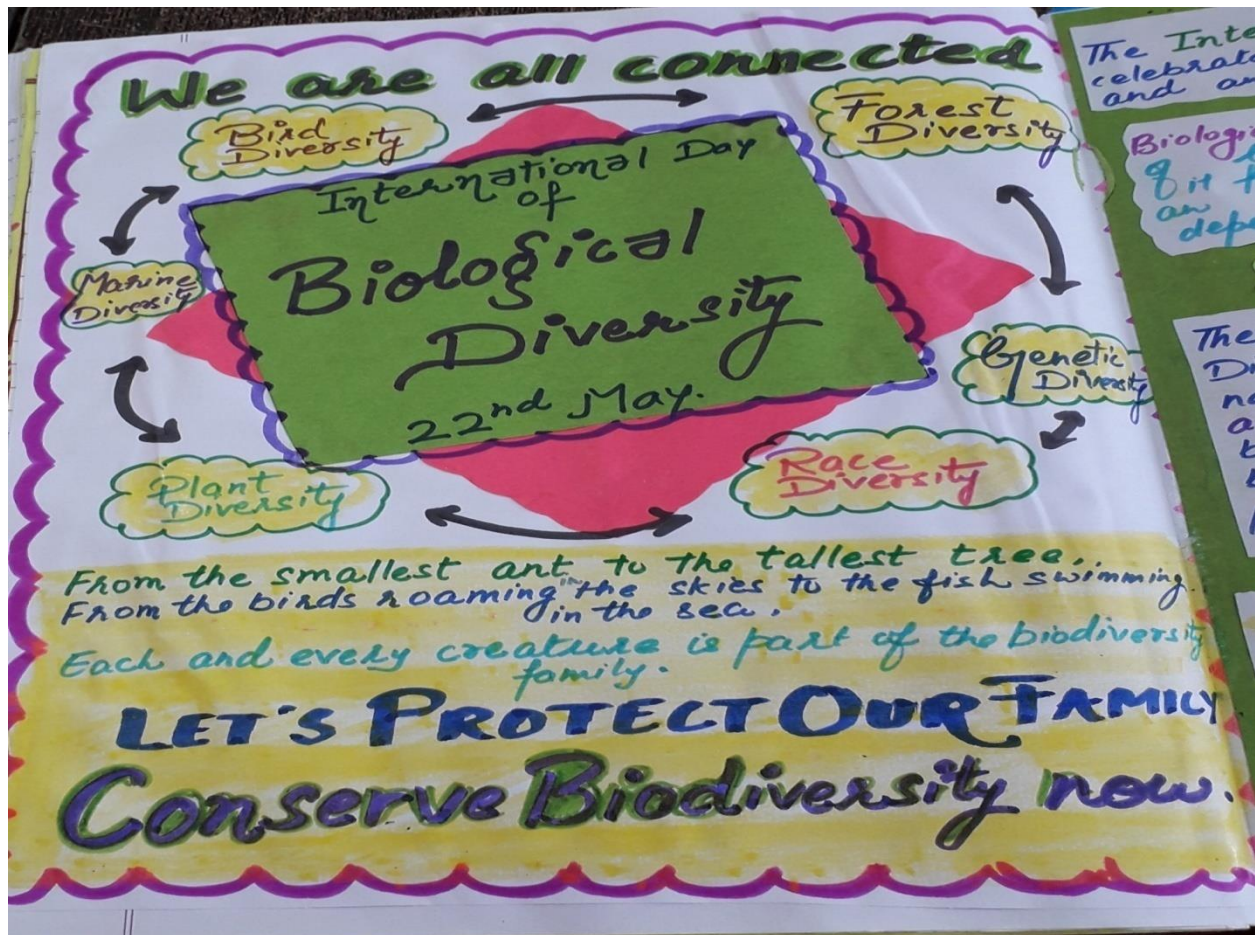 We are all connected
Bird
Diversity
Forest
Diversity
International Day
of
Biological
Diversity
22nd May.
Marine
Diversity
Genetic
Diversity
Plant
Diversity
Race
Diversity
From the smallest ant to the tallest tree..
From the birds roaming in the skies to the fish swimming
in the sea.
Each and every creature is part of the biodiversity
family.
LET'S PROTECT OUR FAMILY
Conserve Biodiversity now.
The
celebrat
and
Biologi
an
The